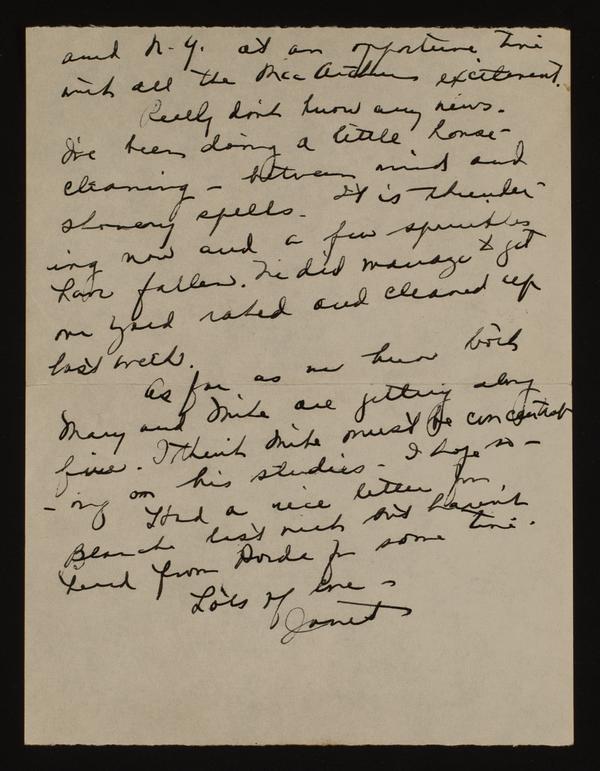 and N.Y. at an opportune time
with all the MacArthur excitement.
Really don't know any news.
I've been doing a little house-
cleaning - between wind and
stormy spells. It is thunder-
ing now and a few sprinkles
have fallen. We did manage to get
our yard raked and cleaned up
last week.
As far as we know both
Mary and Mike are getting along
fine. I think Mike must be concentrat
-ing on his studies - I hope so -
Had a nice letter from
Blanche last week but haven't
heard from for some time.
Lots of love -
Janet